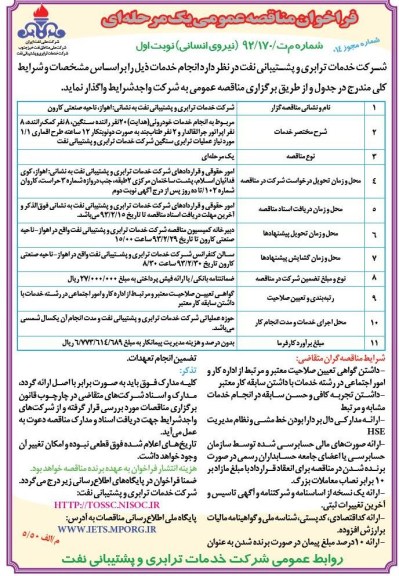 فراخوان مناقصه عمومی یک مرحله‌ای
شماره مجوز
شماره م‌ت/۹۲/۱۷۰ (نیروی انسانی) نوبت اول
شرکت خدمات ترابری و پشتیبانی نفت در نظر دارد انجام خدمات ذیل را بر اساس مشخصات و شرایط
کلی مندرج در جدول و از طریق برگزاری مناقصه عمومی به شرکت واجد شرایط واگذار نماید.
۱ نام و نشانی مناقصه گزار شرکت خدمات ترابری و پشتیبانی نفت به نشانی: اهواز، ناحیه صنعتی کارون
۲ شرح مختصر خدمات مربوط به انجام خدمات خودرویی (هدایت) ۲۰ نفر راننده سنگین، ۸ نفر کمک‌راننده، ۸
نفر اپراتور جرثقال و ۲ نفر طناب‌بند به صورت دو نوبتکار ۱۲ ساعته طرح اقماری ۱/۱
مورد نیاز عملیات ترابری سنگین شرکت خدمات ترابری و پشتیبانی نفت
۳ نوع مناقصه یک مرحله‌ای
۴ محل و زمان تحویل درخواست شرکت در مناقصه امور حقوقی و قراردادهای شرکت خدمات ترابری و پشتیبانی نفت به نشانی: اهواز، کوی
فدائیان اسلام، پشت ساختمان مرکزی ۲ طبقه، جنب دروازه شماره ۳ حراست، کاروان
شماره ۱۰۲ تا ده روز پس از درج آگهی نوبت دوم
۵ محل و زمان دریافت اسناد مناقصه امور حقوقی و قراردادهای شرکت خدمات ترابری و پشتیبانی نفت به نشانی فوق‌الذکر و
آخرین مهلت دریافت اسناد مناقصه تا تاریخ ۹۳/۲/۱۵ می‌باشد.
۶ محل و زمان تحویل پیشنهادها دبیرخانه کمیسیون مناقصه شرکت خدمات ترابری و پشتیبانی نفت واقع در اهواز- ناحیه
صنعتی کارون تا تاریخ ۹۳/۲/۲۹ ساعت ۱۵/۰۰
۷ محل و زمان گشایش پیشنهادها سالن کنفرانس شرکت خدمات ترابری و پشتیبانی نفت واقع در اهواز- ناحیه صنعتی
کارون تاریخ ۹۳/۲/۳۰ ساعت ۸/۳۰
۸ نوع و مبلغ تضمین شرکت در مناقصه ضمانتنامه بانکی/ یا ارائه فیش پرداختی به مبلغ ۲۷/۰۰۰/۰۰۰ ریال
۹ رتبه‌بندی و تعیین صلاحیت گواهی تعیین صلاحیت معتبر و مرتبط از اداره کار و امور اجتماعی در رشته خدمات با
داشتن سابقه کار معتبر
۱۰ محل اجرای خدمات و مدت انجام کار حوزه عملیاتی شرکت خدمات ترابری و پشتیبانی نفت و مدت انجام آن یکسال شمسی
می‌باشد.
۱۱ مبلغ برآورد کارفرما بدون درصد و هزینه مدیریت پیمانکار به مبلغ ۶/۷۷۳/۶۱۴/۶۸۹ ریال
شرایط مناقصه گران متقاضی:
-داشتن گواهی تعیین صلاحیت معتبر و مرتبط از اداره کار و
امور اجتماعی در رشته خدمات با داشتن سابقه کار معتبر
-داشتن تجربه کافی و حسن سابقه در انجام خدمات
مشابه و مرتبط
-ارائه مدارکی دال بر دارا بودن خط مشی و نظام مدیریت
HSE
-ارائه صورت‌های مالی حسابرسی شده توسط سازمان
حسابرسی یا اعضای جامعه حسابداران رسمی در صورت
برنده شدن در مناقصه برای انعقاد قرارداد با مبلغ مازاد بر
۱۰ برابر نصاب معاملات بزرگ.
-ارائه یک نسخه از اساسنامه و شرکتنامه و آگهی تاسیس و
آخرین تغییرات ثبتی.
-ارائه کد اقتصادی، کد پستی، شناسه ملی و گواهینامه مالیات
بر ارزش افزوده.
-ارائه ۱۰ درصد مبلغ پیمان در صورت برنده شدن به عنوان
تضمین انجام تعهدات.
تذکر:
کلیه مدارک فوق باید به صورت برابر با اصل ارائه گردد،
مدارک و اسناد شرکت‌های متقاضی در چارچوب قانون
برگزاری مناقصات مورد بررسی قرار گرفته و از شرکت‌های
واجد شرایط جهت دریافت اسناد و مدارک مناقصه دعوت به
عمل می‌آید.
تاریخ‌های اعلام شده فوق قطعی نبوده و امکان تغییر آن
وجود خواهد داشت.
هزینه انتشار فراخوان به عهده برنده مناقصه خواهد بود.
ضمنا فراخوان در پایگاه‌های اطلاع رسانی زیر درج می‌گردد.
شرکت خدمات ترابری و پشتیبانی نفت:
HTTP://TOSSC.NISOC.IR
پایگاه ملی اطلاع رسانی مناقصات به آدرس:
WWW.IETS.MPORG.IR
م/الف ۵/۵۰
روابط عمومی شرکت خدمات ترابری و پشتیبانی نفت